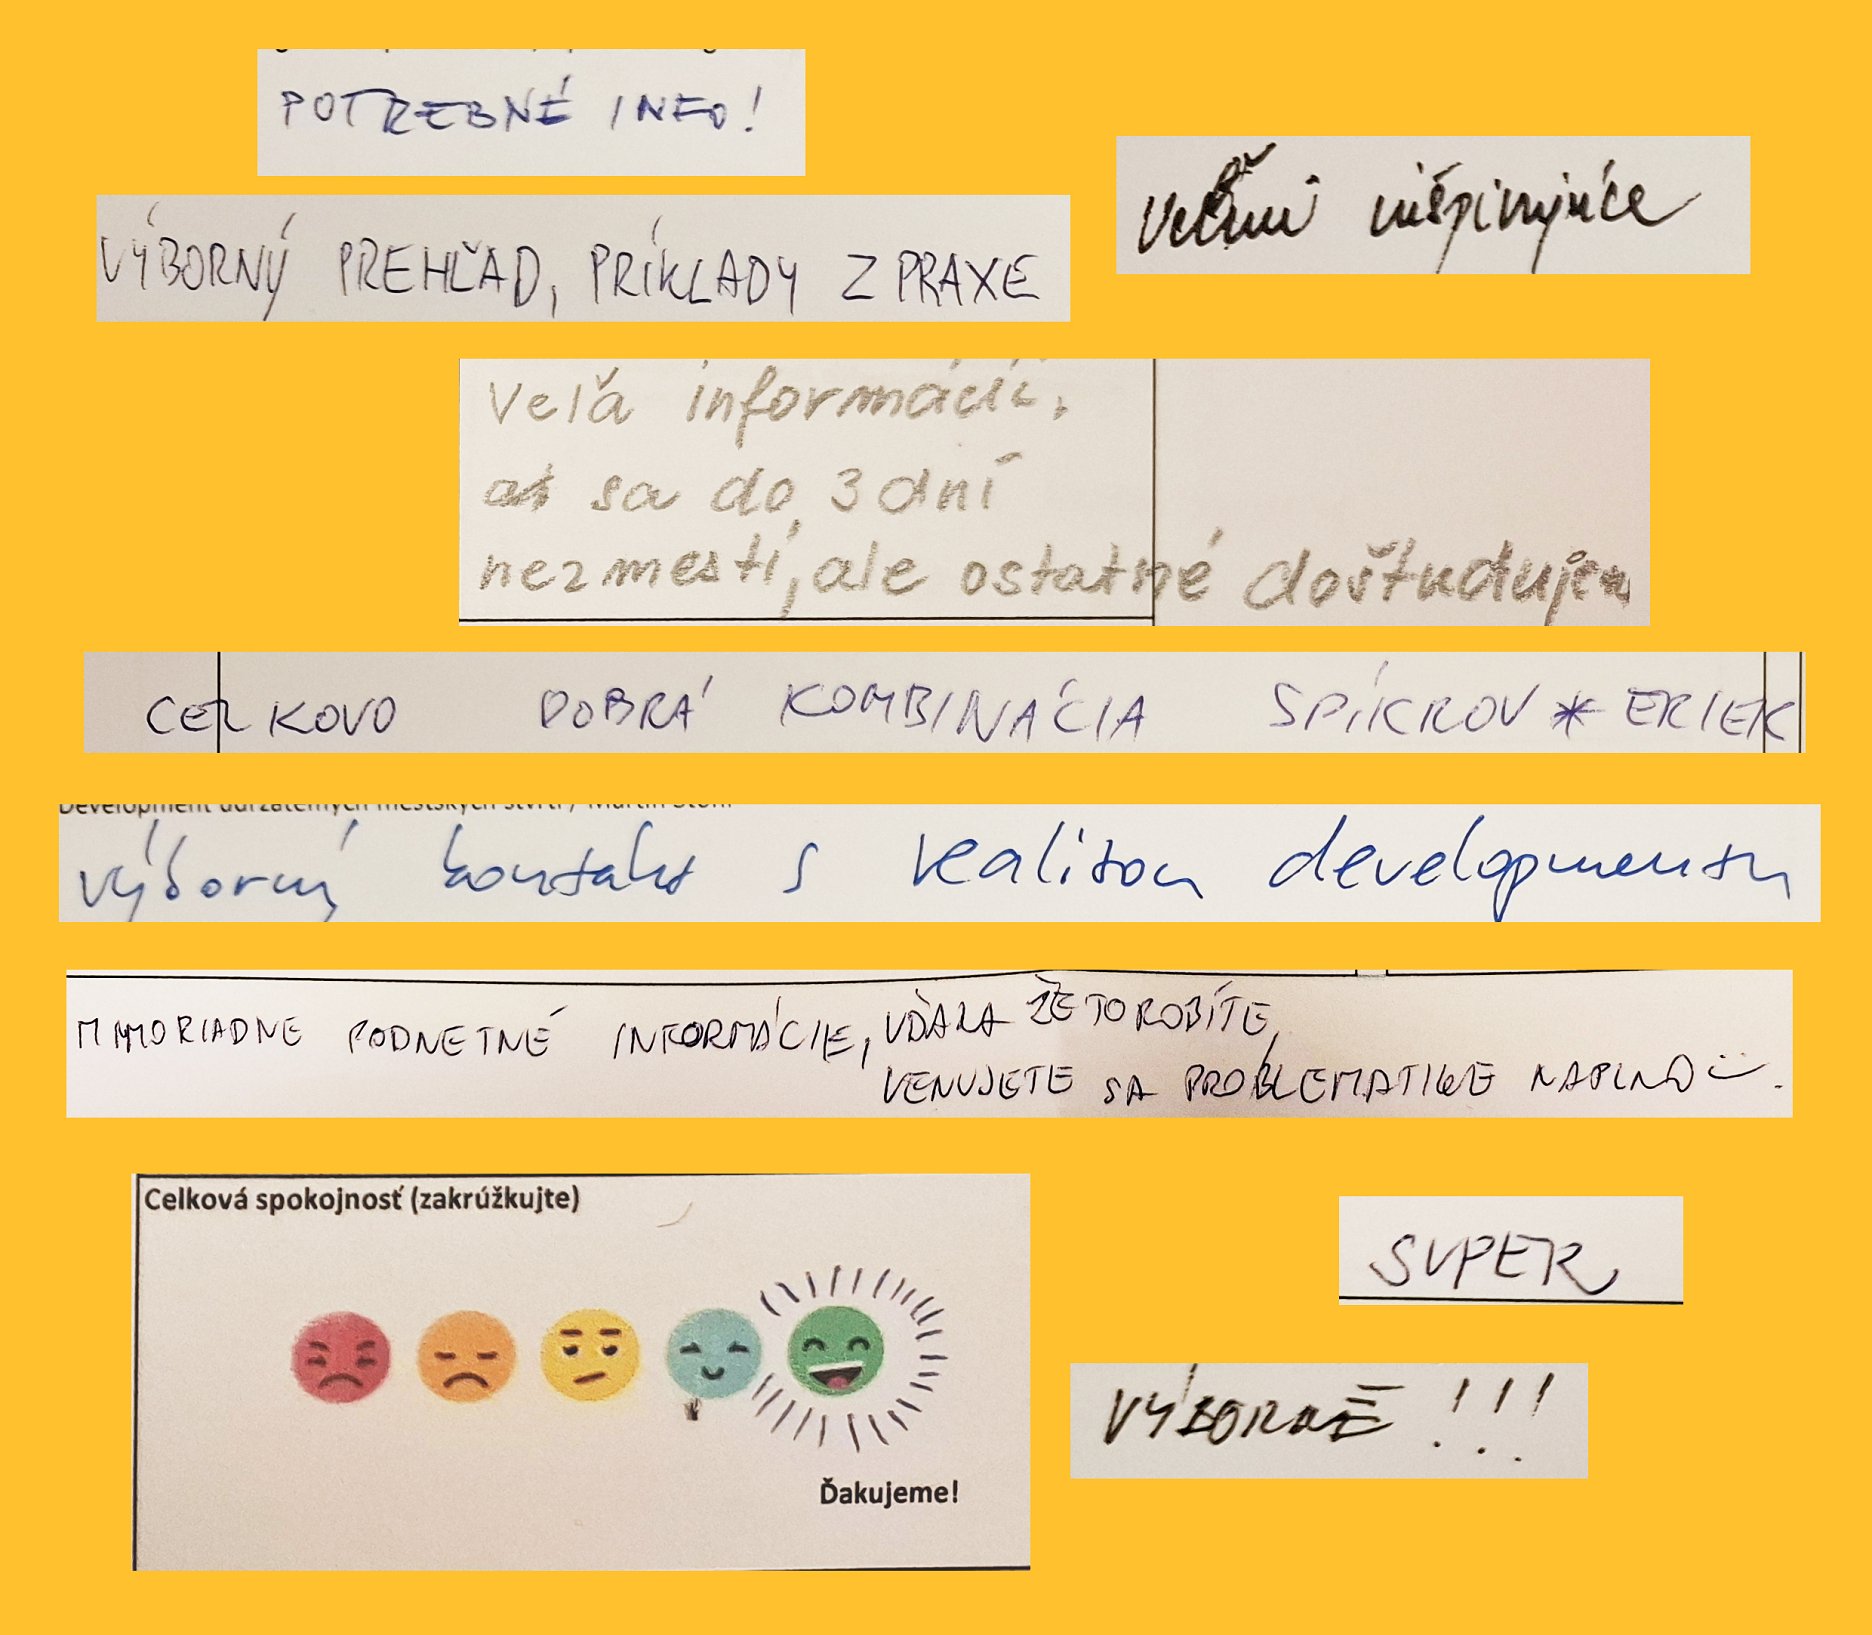 POTREBNÉ INFO!
Veľmi inšpirujúce
VÝBORNÝ PREHĽAD, PRÍKLADY Z PRAXE
Veľa informácií,
sa do 3 dní
nezmestí, ale ostatné doštudujem
CELKOVO DOBRÁ KOMBINÁCIA SPÍKROV * ERIEK
Development udržateľných mestských štvrtí / Martin
výborný kontakt s realitou developmentu
MIMORIADNE PODNETNÉ INFORMÁCIE, VĎAKA ŽE TO ROBÍTE,
VENUJETE SA PROBLEMATIKE NAPLNO
Celková spokojnosť (zakrúžkujte)
SUPER
VÝBORNÉ !!!
Ďakujeme!